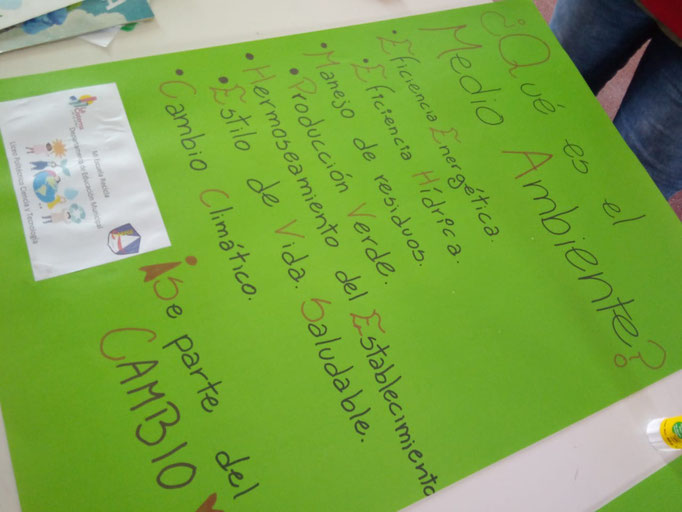 ¿Qué es el
Medio Ambiente?
• Eficiencia Energética.
• Eficiencia Hídreca.
• Manejo de residuos.
• Producción Verde.
• Hermoseamiento del Establecimiento
• Estilo de Vida Saludable.
• Cambio Climático.
¡Se parte del
CAMBIO
Mi Escuela Recicla
Departamento de Educación Municipal
Liceo Politécnico Ciencia y Tecnología